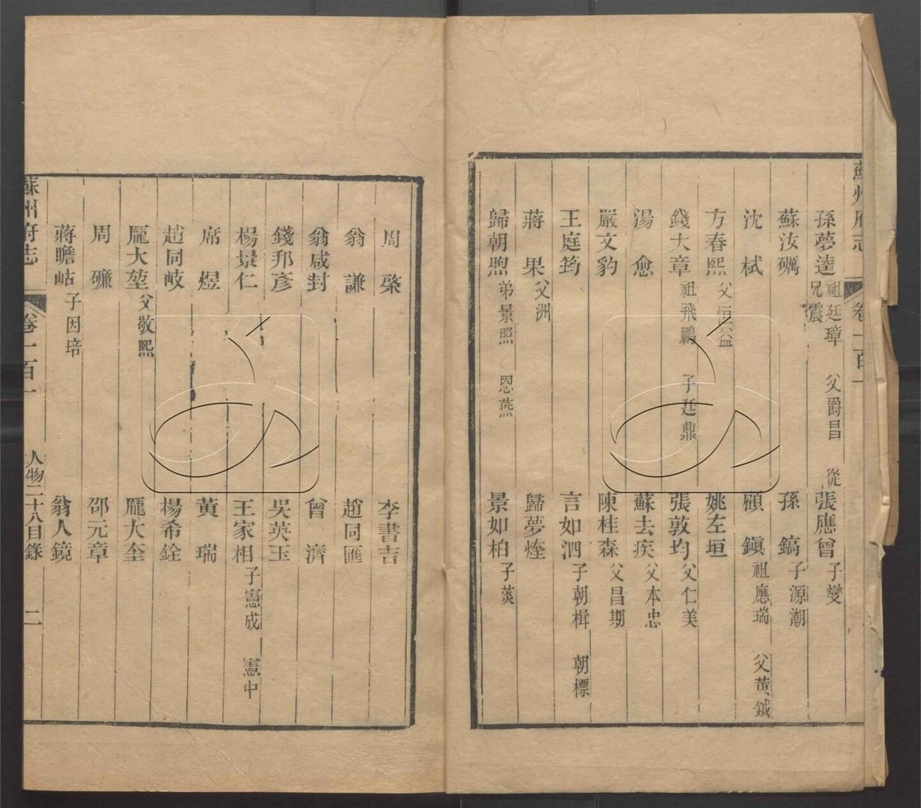 蘇州府志 卷一百一
孫夢逵 祖廷璋 父爵昌 從兄震 張應曾 子燮
蘇汝礪 孫鎬 子源潮
沈栻 顧鎮 祖應瑞 父黃鉞
方春熙 父恒益 姚左垣
錢大章 祖飛鵬 子廷鼎 張敦均 父仁美
湯愈 蘇去疾 父本忠
嚴文豹 陳桂森 父昌期
王庭筠 言如泗 子朝楫 朝標
蔣果 父洲 歸夢烓
歸朝煦 弟景照 恩燕 景如柏 子葓
周棨 李書吉
翁謙 趙同匯
翁咸封 曾濟
錢邦彥 吳英玉
楊景仁 王家相 子憲成 憲中
席煜 黃瑞
趙同岐 楊希銓
龎大堃 父敬熙 龎大奎
周礹 邵元章
蔣瞻岵 子因培 翁人鏡
蘇州府志 卷一百一 人物二十八目錄 二